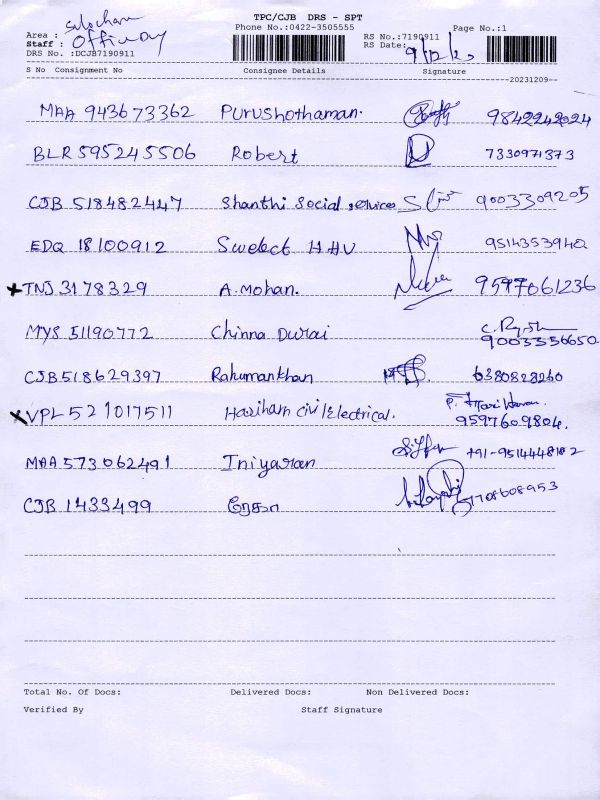 TPC/CJB DRS - SPT
Phone No.:0422-3505555
Page No.:1
Area : Sulochana
RS No.:7190911
Staff : Office
RS Date: 9/12/23
DRS No. :DCJB7190911
S No Consignment No Consignee Details Signature
20231209
MAA 943673362 Purushothaman. 9842242024
BLR 595245506 Robert 7330971373
CJB 518482447 Shanthi Social services 9003309205
EDQ 18100912 Swelect HHV 9514353940
TNJ 3178329 A.Mohan. 9597061236
MYS 51190772 Chinna Durai 9003356650
CJB 518629397 Rahumankhan 6380828260
VPL 521017511 Hariham Civil Electrical. P. Hari Haran. 9597609804.
MAA 573062491 Iniyaran +91-9514448102
CJB 1433499 ரேகா 9708608953
Total No. Of Docs: Delivered Docs: Non Delivered Docs:
Verified By Staff Signature